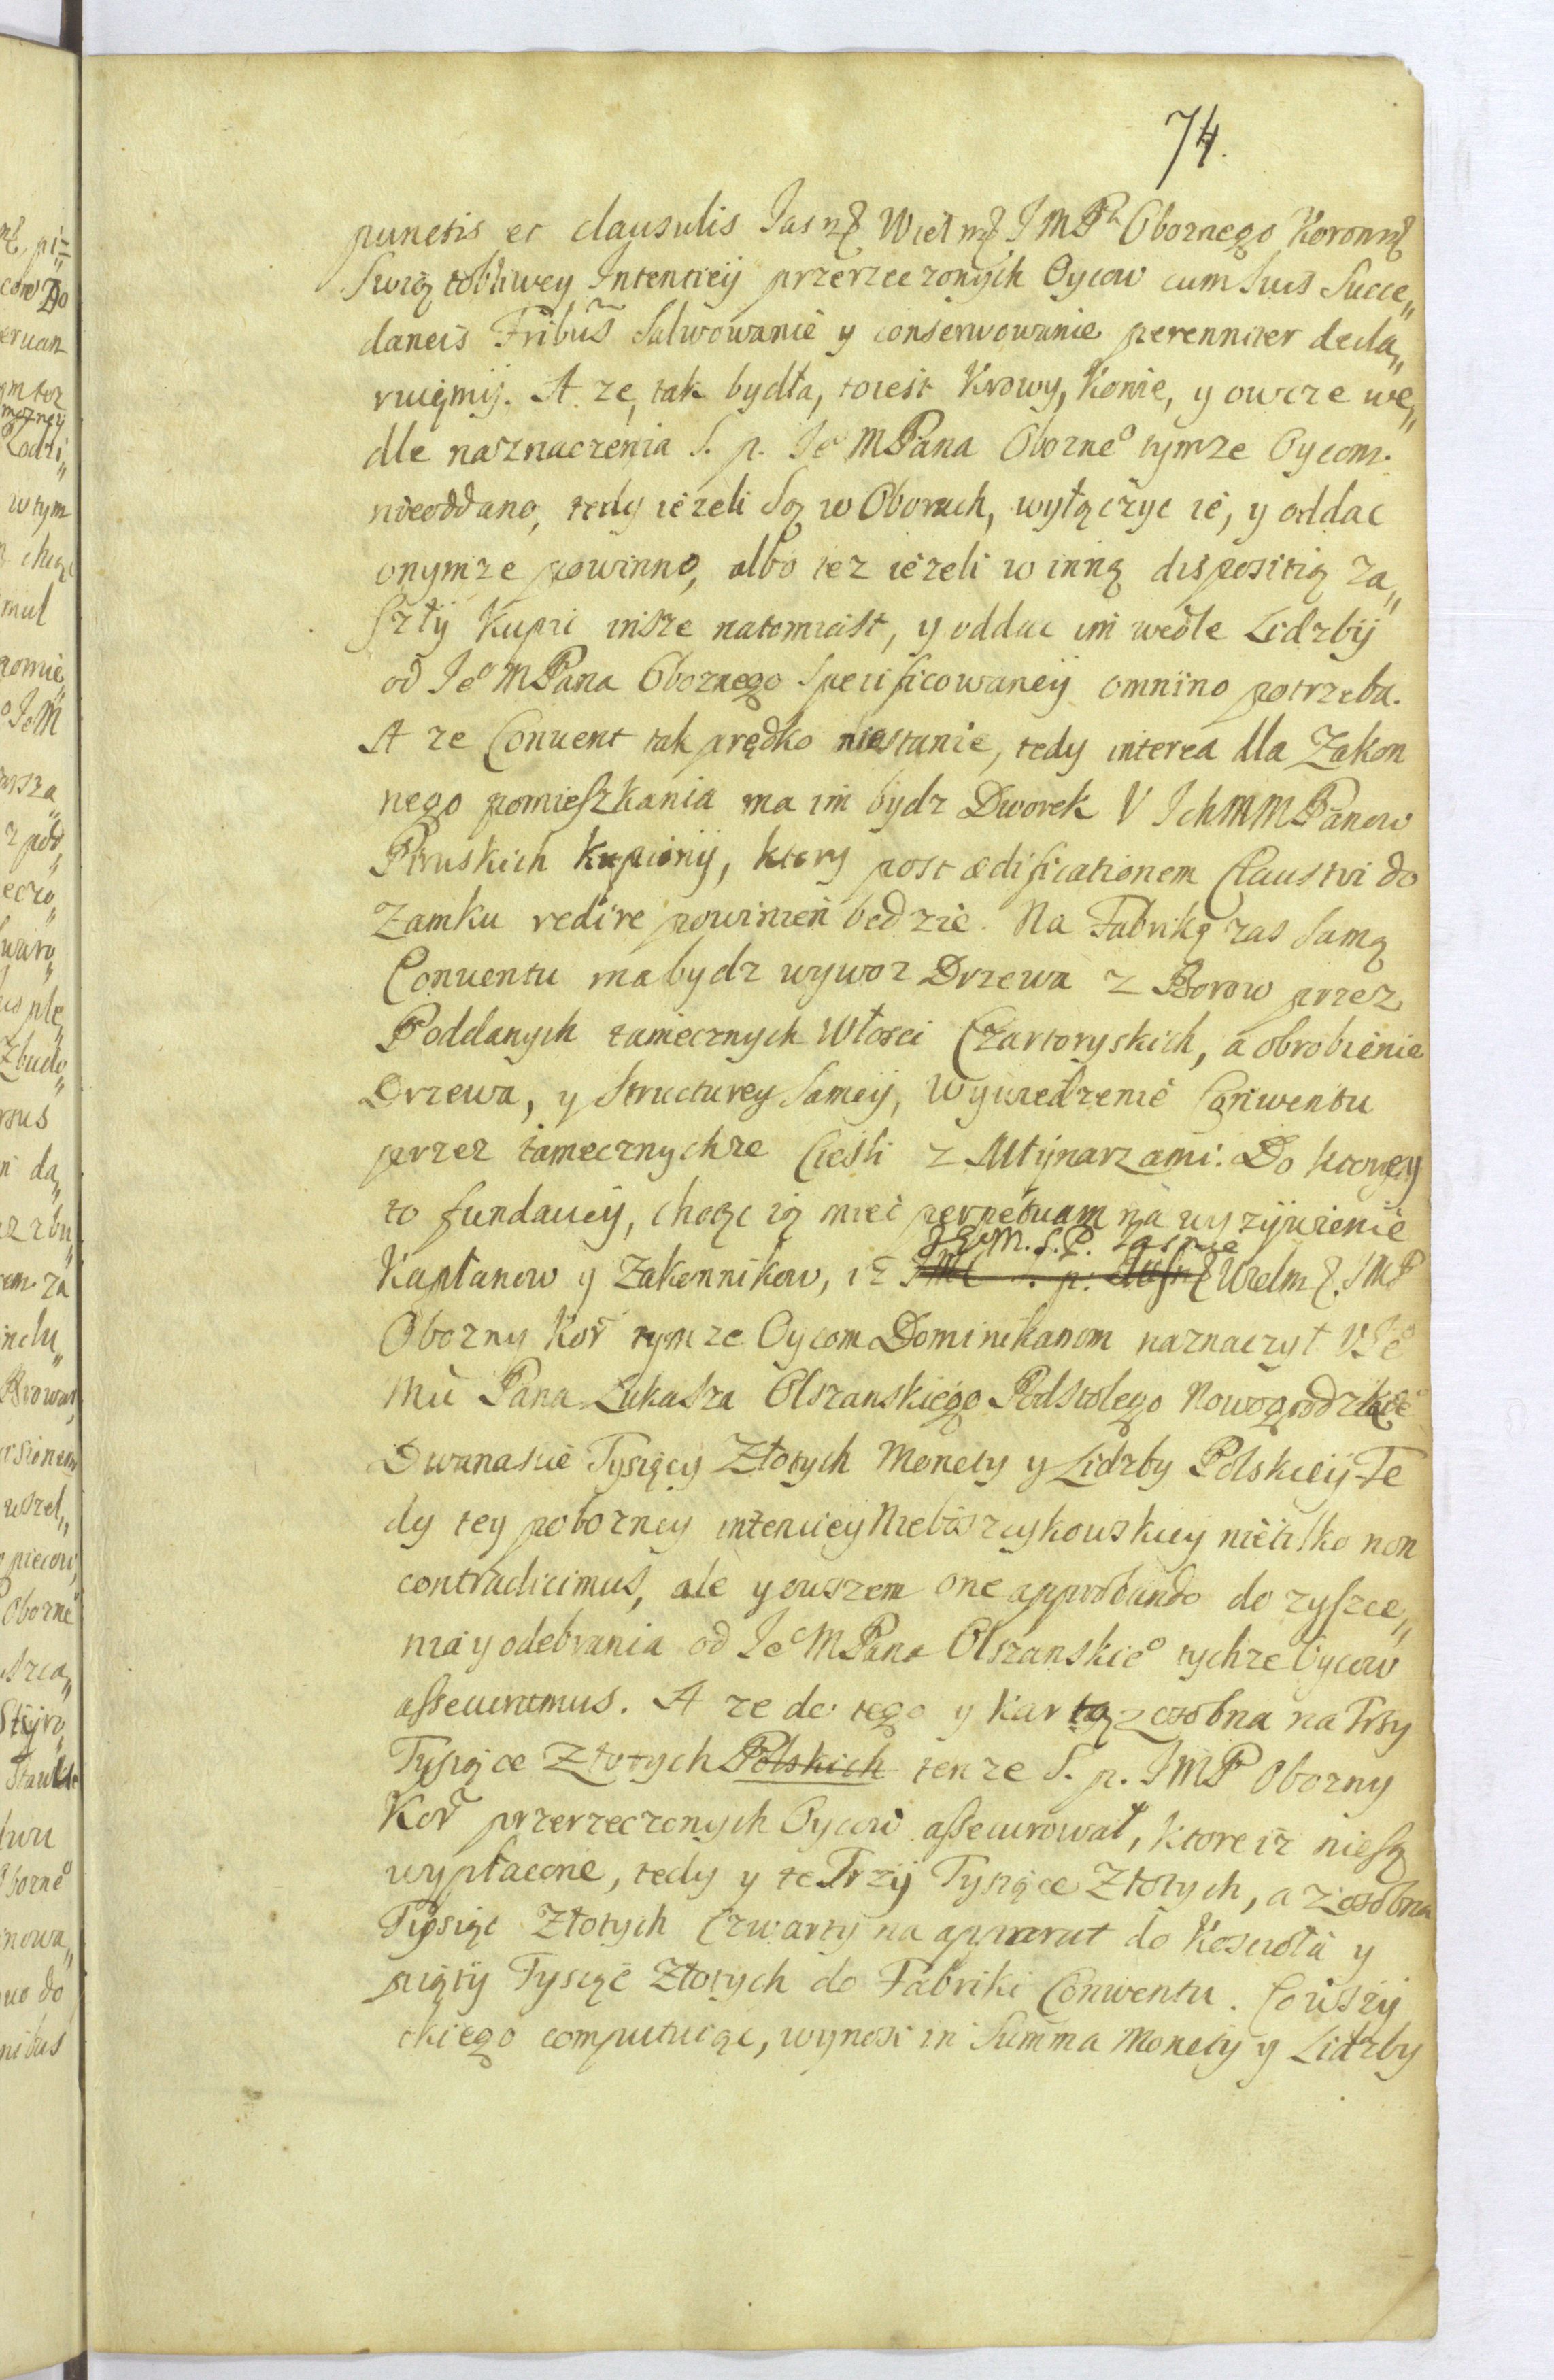 74.
punctis et clausulis Jasnę Wielmę JMPa Oboznego Koronnę
Swiątobliwey Intentieij przerzeczonych Oycow cum suis Succe„
daneis Fribus salwowanie y conserwowanie perenniter decla„
ruięmij. A ze, tak bydła, toiest Krowy, Konie, y owcze we„
dle naznaczenia S. p. Je MPana Obozneo tymze Oycom
nieoddano, tedy iezeli Są w Oborach, wyłączyc ie, y oddac
onymze powinno, albo tez iezeli w inną dispositią za„
szłÿ Kupic insze natomiast, y oddac im wedle Lidzbÿ
od Jeo MPana Oboznego Specificowaneÿ omnino potrzeba.
A ze Convent tak prędko niestanie, tedy interea dla Zakon
nego pomieszkania ma im bydz Dworek V IchMMPanow
Pruskich kupionÿ, ktory post ædificationem Claustri do
Zamku redire powinień bedzie. Na Fabriką zas samą
Conventu ma bydz wywoz Drzewa z Borow przez
Poddanych tamecznych Włosci Czartoryskich, a obrobienie
Drzewa, y structurey Sameÿ, wywiedzenie Conwentu
przez tamecznychze Ciesli z Młÿnarzami. Do ktorey
to fundacieÿ, chcąc ią miec perpetuam na wyzÿwienie
JeM. S.P. Jasnie
Kapłanow y Zakonnikow, iz JMC S. p. Jasnę Wielmę. JMP
Obozny Kor tymze Oycom Dominikanom naznaczył V Jeo
Mci Pana Lukasza Olszanskiego Podstolego Nowogrodzkieo
Dwanascie Tysięcy Złotych Monety y Lidzby Polskieÿ Te
dy tey pobozney intencieÿ Niebosczykowskiey nietilko non
contradicimus, ale y owszem one approbando do zyszce„
nia y odebrania od Jeo MPana Olszanskieo tychze Oycow
assecuramus. A ze do tego y kartą z osobna na Trzy
Tysiące Złotych Polskich tenze S. p. JMP Obozny
Kor przerzeczonych Oycow assecurował, ktore iz niesą
wypłacone, tedy y te Trzÿ Tysiące Złotych, a z osobna
Tysiąc Złotych Czwartÿ na apparat do Kosciołá y
piątÿ Tysiąc Złotych do Fabriki Conwentu. Co wszÿ
tkiego computuiąc, wynosi in Summa Monety y Lidzby